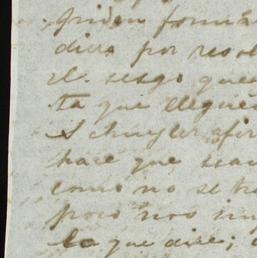 piden formá
diera por resol
el sesgo que
ta que llegue
Schuyler afir
hace que sea
como no se ha
poco nos im
lo que dice;